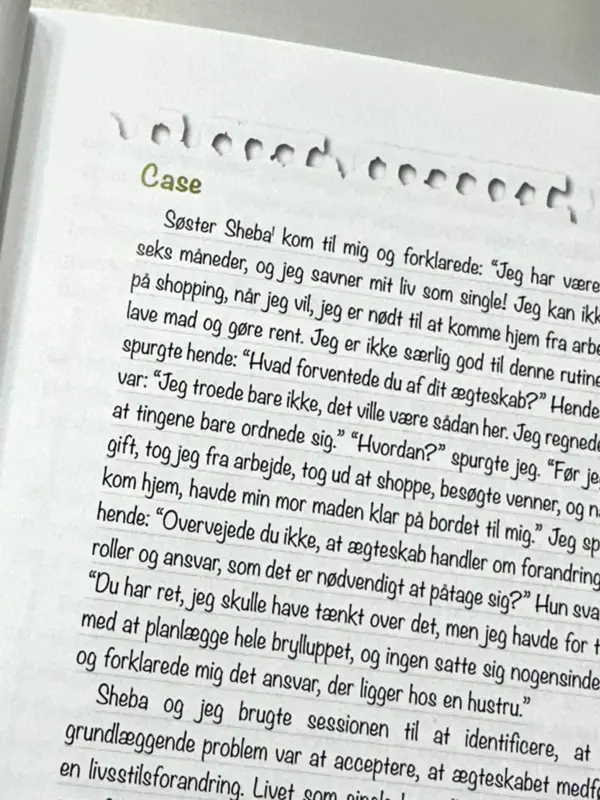 Case
Søster Sheba¹ kom til mig og forklarede: “Jeg har være
seks måneder, og jeg savner mit liv som single! Jeg kan ikk
på shopping, når jeg vil, jeg er nødt til at komme hjem fra arbe
lave mad og gøre rent. Jeg er ikke særlig god til denne rutine
spurgte hende: “Hvad forventede du af dit ægteskab?” Hende
var: “Jeg troede bare ikke, det ville være sådan her. Jeg regnede
at tingene bare ordnede sig.” “Hvordan?” spurgte jeg. “Før je
gift, tog jeg fra arbejde, tog ud at shoppe, besøgte venner, og n
kom hjem, havde min mor maden klar på bordet til mig.” Jeg sp
hende: “Overvejede du ikke, at ægteskab handler om forandring
roller og ansvar, som det er nødvendigt at påtage sig?” Hun sva
“Du har ret, jeg skulle have tænkt over det, men jeg havde for t
med at planlægge hele brylluppet, og ingen satte sig nogensinde
og forklarede mig det ansvar, der ligger hos en hustru.”
Sheba og jeg brugte sessionen til at identificere, at
grundlæggende problem var at acceptere, at ægteskabet medfø
en livsstilsforandring. Livet som